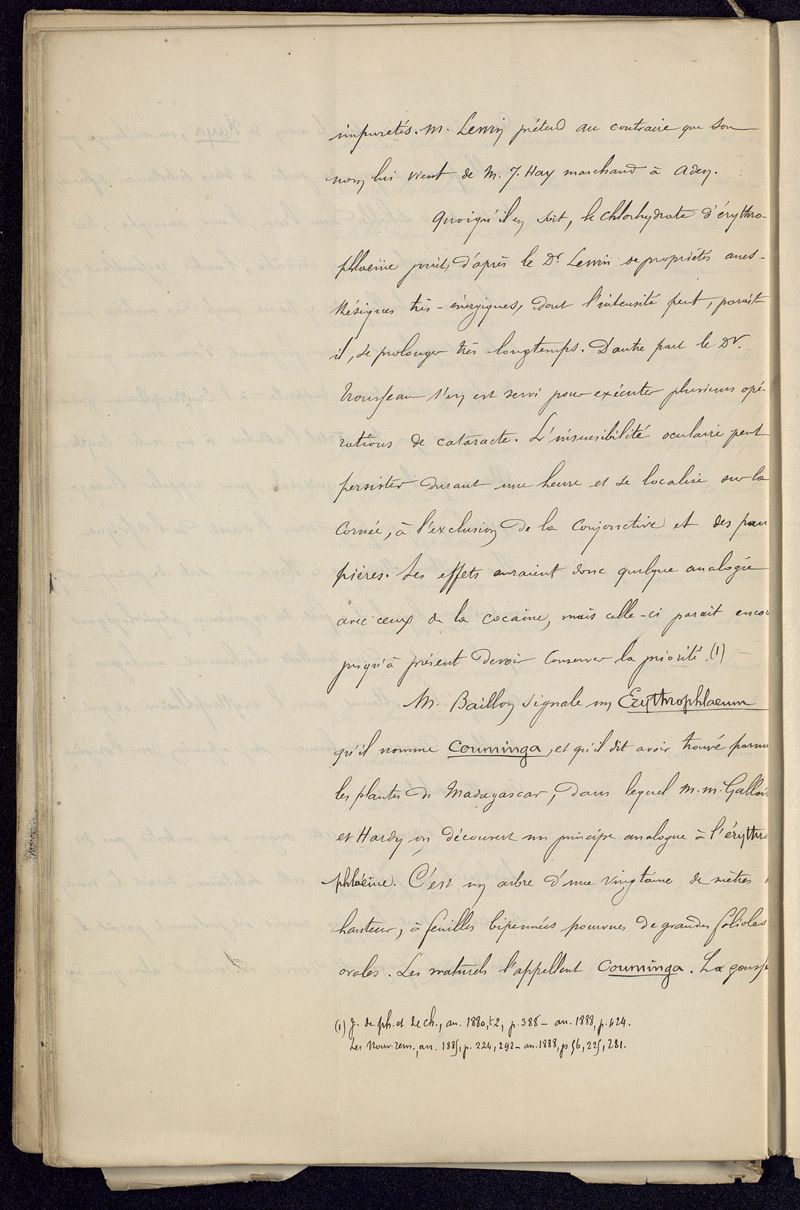 impuretés. M. Lewin prétend au contraire que son
nom lui vient de M. J. Hay marchand à Aden.
Quoiqu'il en soit, le chlorhydrate d'érythro-
phloeïne jouit, d'après le Dr Lewin de propriétés anes-
thésiques très-énergiques, dont l'intensité peut, paraît
il, se prolonger très-longtemps. D'autre part le Dr.
Trousseau s'en est servi pour exécuter plusieurs opé-
rations de cataracte. L'insensibilité oculaire peut
persister durant une heure et se localise sur la
cornée, à l'exclusion de la conjonctive et des pau
pières. Ses effets auraient donc quelque analogie
avec ceux de la cocaïne, mais celle-ci paraît enco
jusqu'à présent devoir conserver la priorité. (1)
M. Baillon signale un Erythrophlaeum
qu'il nomme Couminga, et qu'il dit avoir trouvé parmi
les plantes de Madagascar, dans lequel M.M. Gallois
et Hardy on découvert un principe analogue à l'érythro
phlaéine. C'est un arbre d'une vingtaine de mètres
hauteur, à feuilles bipennées pourvues de grandes folioles
ovales. Les naturels l'appellent Couminga. La gousse
(1) J. de ph. et de ch., an. 1880, t.2, p. 388 – an. 1888, p. 424.
Les Nouv. rem., an. 1885, p. 224, 292 – an. 1888, p 56, 225, 281.